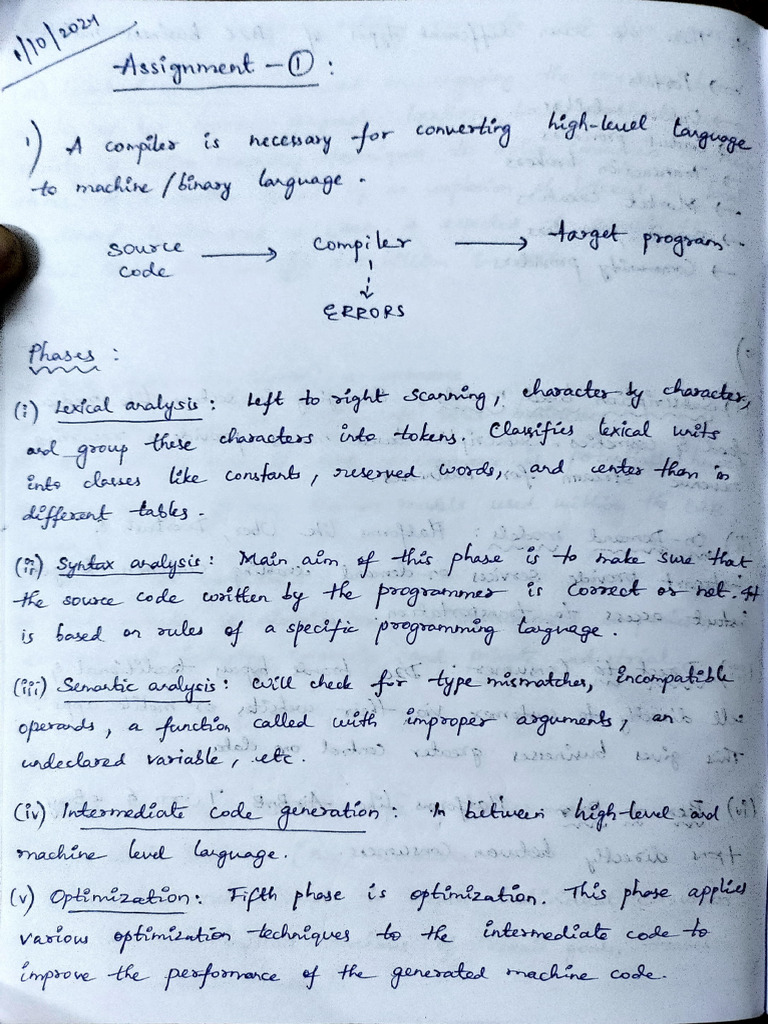 1/10/2024
Assignment - ① :
1) A compiler is necessary for converting high-level language
to machine/binary language.
source code → compiler → target program.
ERRORS
Phases :
(i) Lexical analysis : Left to right scanning, character by character,
and group these characters into tokens. Classifies lexical units
into classes like constants, reserved words, and enter them in
different tables.
(ii) Syntax analysis : Main aim of this phase is to make sure that
the source code written by the programmer is correct or not. It
is based on rules of a specific programming language.
(iii) Semantic analysis : will check for type mismatches, incompatible
operands, a function called with improper arguments, an
undeclared variable, etc.
(iv) Intermediate code generation : In between high-level and
machine level language.
(v) Optimization : Fifth phase is optimization. This phase applies
various optimization techniques to the intermediate code to
improve the performance of the generated machine code.